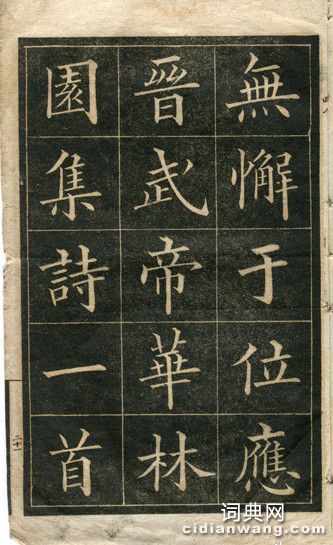 無懈于位應
晉武帝華林
園集詩一首
二十一
词典网
cidianwang.com